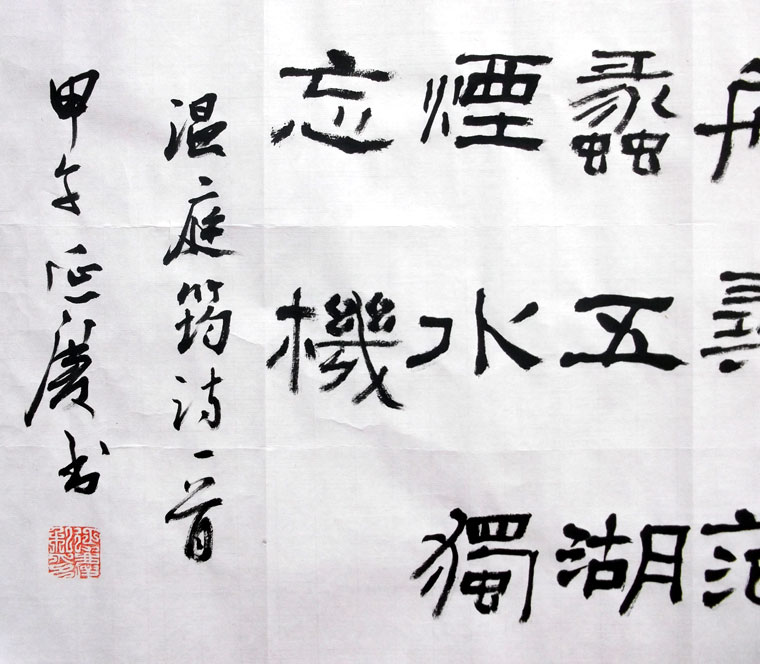 舟尋范
蠡五湖
煙水獨
忘機
温庭筠诗一首
甲午延慶书